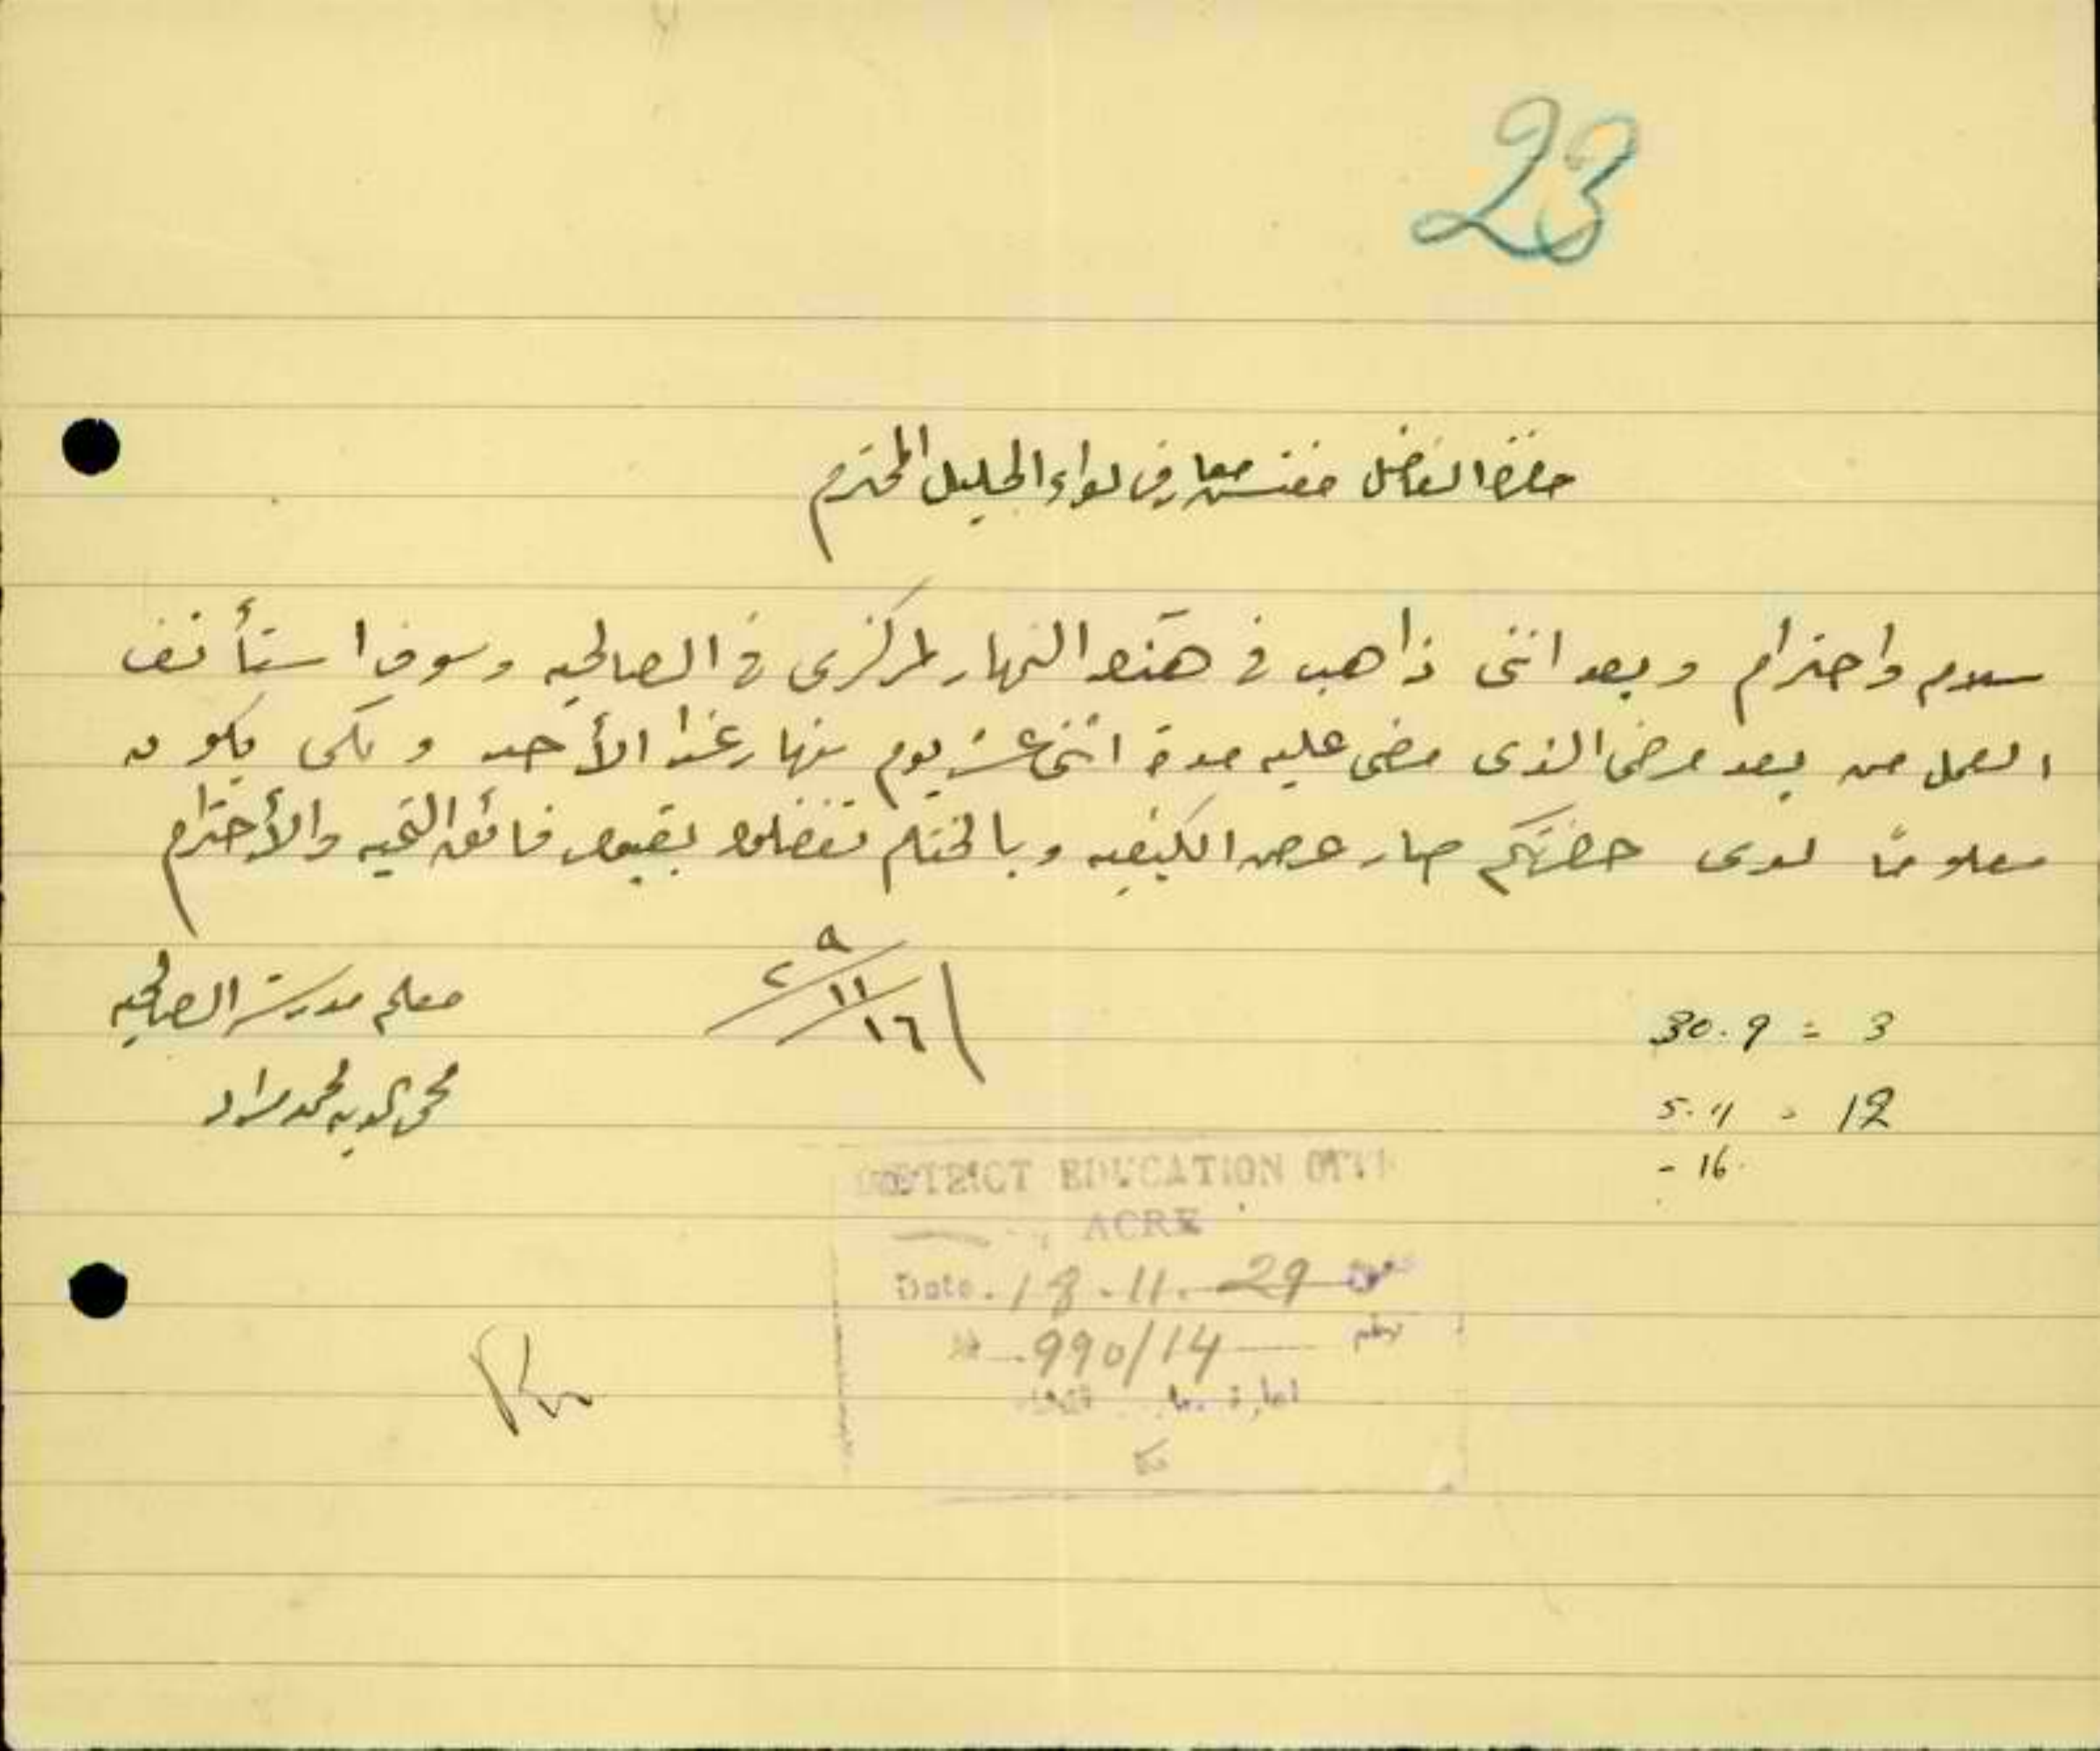 23
حضرة الفاضل مفتش معارف لواء الجليل المحترم
سلام واحترام وبعد انني ذاهب في هذا النهار لمركزي في الصالحيه وسوف استأنف
العمل من بعد مرضي الذي مضى عليه مدة اثني عشر يوم بنهار غداً الأحد ولكي يكون
معلوماً لدى حضرتكم صار عرض الكيفيه وبالختام تفضلوا بقبول فائق التحيه والأحترام
١٦/١١/٢٩
معلم مدرسة الصالحيه
محي الدين محمد مراد
30.9 = 3
5.11 = 12
- 16.
DISTRICT EDUCATION OFFI
ACRE
Date. 18.11.29
990/14